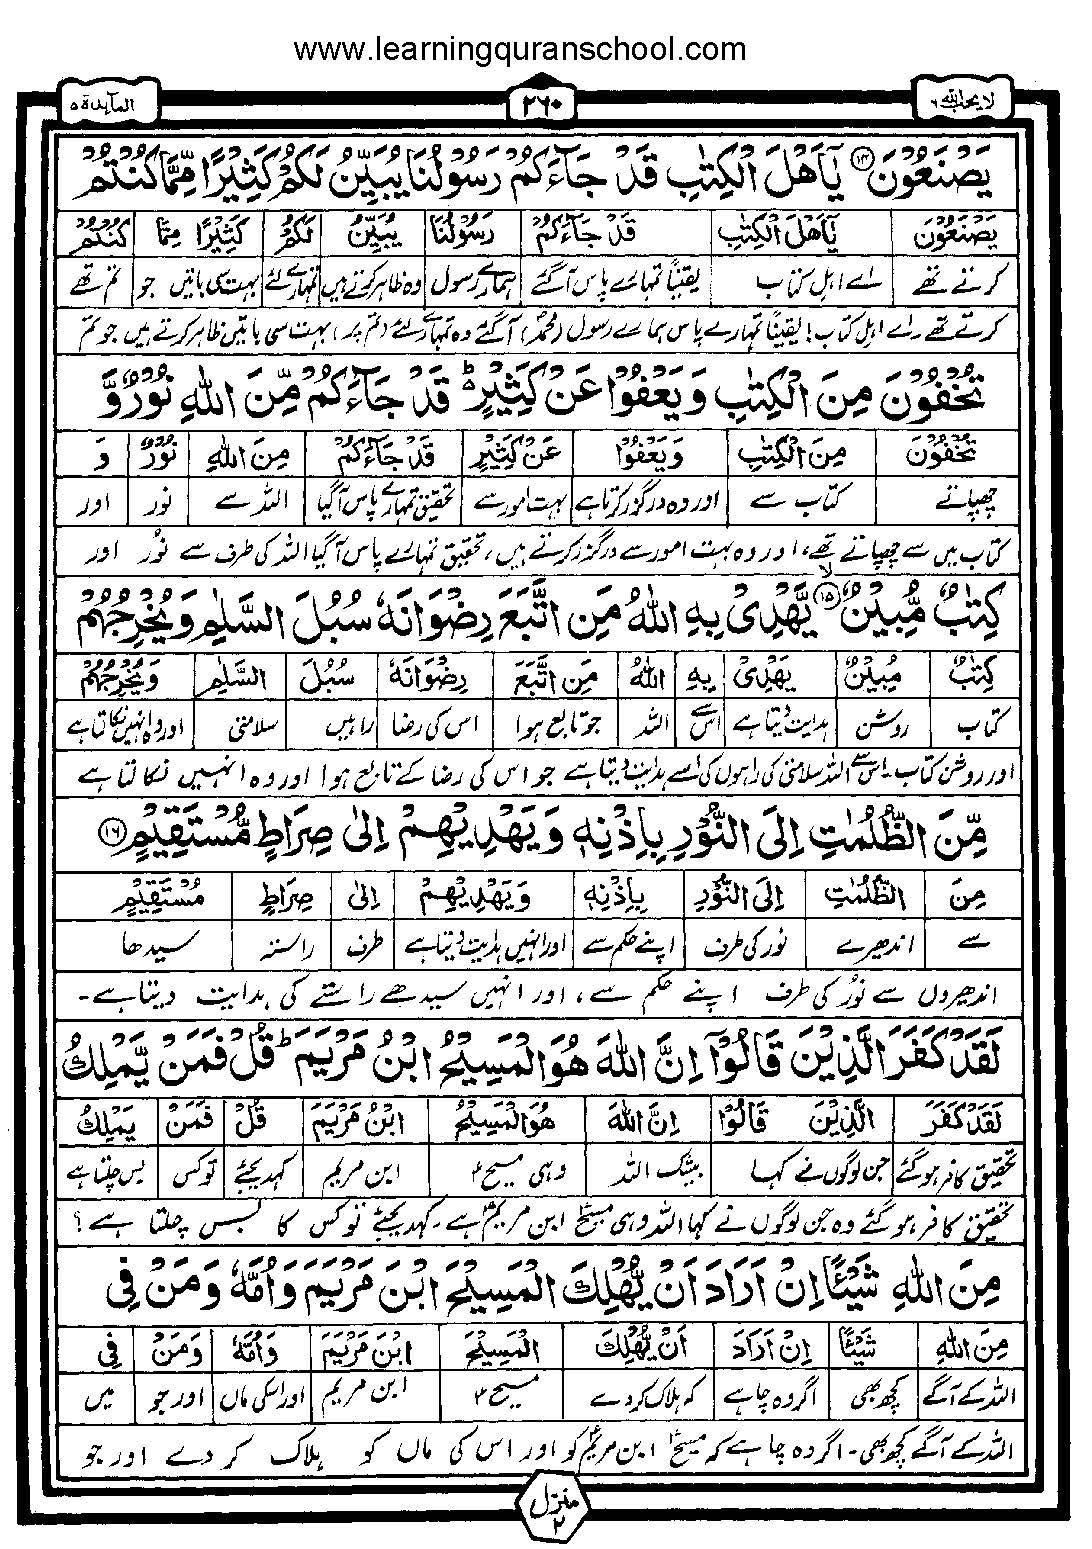 www.learningquranschool.com
المآئدة ۵
۲۶۰
لا یحب اللہ ۶
یَصْنَعُوْنَ ۝۱۴ یٰۤاَهْلَ الْكِتٰبِ قَدْ جَآءَكُمْ رَسُوْلُنَا یُبَیِّنُ لَكُمْ كَثِیْرًا مِّمَّا كُنْتُمْ
یَصْنَعُوْنَ یٰۤاَهْلَ الْكِتٰبِ قَدْ جَآءَكُمْ رَسُوْلُنَا یُبَیِّنُ لَكُمْ كَثِیْرًا مِّمَّا كُنْتُمْ
کرتے تھے اے اہل کتاب یقیناً تمہارے پاس آگئے ہمارے رسول وہ ظاہر کرتے ہیں تمہارے لئے بہت سی باتیں جو تم تھے
کرتے تھے، اے اہل کتاب! یقیناً تمہارے پاس ہمارے رسول (محمدؐ) آگئے وہ تمہارے لئے (تم پر) بہت سی باتیں ظاہر کرتے ہیں جو تم
تُخْفُوْنَ مِنَ الْكِتٰبِ وَیَعْفُوْا عَنْ كَثِیْرٍ ؕ قَدْ جَآءَكُمْ مِّنَ اللّٰهِ نُوْرٌ وَّ
تُخْفُوْنَ مِنَ الْكِتٰبِ وَیَعْفُوْا عَنْ كَثِیْرٍ قَدْ جَآءَكُمْ مِنَ اللّٰهِ نُوْرٌ وَ
چھپاتے کتاب سے اور وہ درگزر کرتا ہے بہت امور سے تحقیق تمہارے پاس آگیا اللہ سے نور اور
کتاب میں سے چھپاتے تھے، اور وہ بہت امور سے درگزر کرتے ہیں، تحقیق تمہارے پاس آگیا اللہ کی طرف سے نور اور
كِتٰبٌ مُّبِیْنٌ ۝۱۵ۙ یَّهْدِیْ بِهِ اللّٰهُ مَنِ اتَّبَعَ رِضْوَانَهٗ سُبُلَ السَّلٰمِ وَیُخْرِجُهُمْ
كِتٰبٌ مُبِیْنٌ یَهْدِیْ بِهِ اللّٰهُ مَنِ اتَّبَعَ رِضْوَانَهٗ سُبُلَ السَّلٰمِ وَیُخْرِجُهُمْ
کتاب روشن ہدایت دیتا ہے اس سے اللہ جو تابع ہوا اس کی رضا راہیں سلامتی اور وہ انہیں نکالتا ہے
اور روشن کتاب۔ اس سے اللہ سلامتی کی راہوں کی اسے ہدایت دیتا ہے جو اس کی رضا کے تابع ہوا اور وہ انہیں نکالتا ہے
مِّنَ الظُّلُمٰتِ اِلَی النُّوْرِ بِاِذْنِهٖ وَیَهْدِیْهِمْ اِلٰی صِرَاطٍ مُّسْتَقِیْمٍ ۝۱۶
مِنَ الظُّلُمٰتِ اِلَی النُّوْرِ بِاِذْنِهٖ وَیَهْدِیْهِمْ اِلٰی صِرَاطٍ مُسْتَقِیْمٍ
سے اندھیرے نور کی طرف اپنے حکم سے اور انہیں ہدایت دیتا ہے طرف راستہ سیدھا
اندھیروں سے نور کی طرف اپنے حکم سے، اور انہیں سیدھے راستے کی ہدایت دیتا ہے۔
لَقَدْ كَفَرَ الَّذِیْنَ قَالُوْۤا اِنَّ اللّٰهَ هُوَ الْمَسِیْحُ ابْنُ مَرْیَمَ ؕ قُلْ فَمَنْ یَّمْلِكُ
لَقَدْ كَفَرَ الَّذِیْنَ قَالُوْا اِنَّ اللّٰهَ هُوَ الْمَسِیْحُ ابْنُ مَرْیَمَ قُلْ فَمَنْ یَمْلِكُ
تحقیق کافر ہوگئے جن لوگوں نے کہا بیشک اللہ وہی مسیحؑ ابن مریم کہدیجئے تو کس بس چلتا ہے
تحقیق کافر ہوگئے وہ جن لوگوں نے کہا اللہ وہی مسیحؑ ابن مریمؑ ہے۔ کہدیجئے تو کس کا بس چلتا ہے؟
مِنَ اللّٰهِ شَیْئًا اِنْ اَرَادَ اَنْ یُّهْلِكَ الْمَسِیْحَ ابْنَ مَرْیَمَ وَاُمَّهٗ وَمَنْ فِی
مِنَ اللّٰهِ شَیْئًا اِنْ اَرَادَ اَنْ یُّهْلِكَ الْمَسِیْحَ ابْنَ مَرْیَمَ وَاُمَّهٗ وَمَنْ فِی
اللہ کے آگے کچھ بھی اگر وہ چاہے کہ ہلاک کردے مسیحؑ ابن مریم اور اسکی ماں اور جو میں
اللہ کے آگے کچھ بھی۔ اگر وہ چاہے کہ مسیحؑ ابن مریمؑ کو اور اس کی ماں کو ہلاک کر دے اور جو
منزل ۲